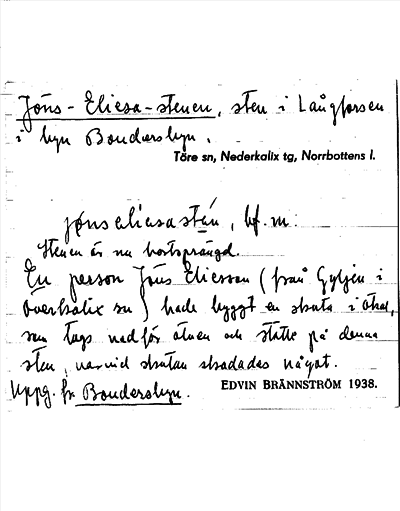 Jöns-Eliesa-stenen, sten i Långforsen
i byn Bondersbyn.
Töre sn, Nederkalix tg, Norrbottens l.
jönseliesastén, bf. m.
Stenen är nu bortsprängd.
En person Jöns Eliesson (från Gyljen i
Överkalix sn) hade byggt en skuta i
som togs nedför älven och stötte på denna
sten, varvid skutan skadades något.
Uppg. fr. Bondersbyn.
EDVIN BRÄNNSTRÖM 1938.